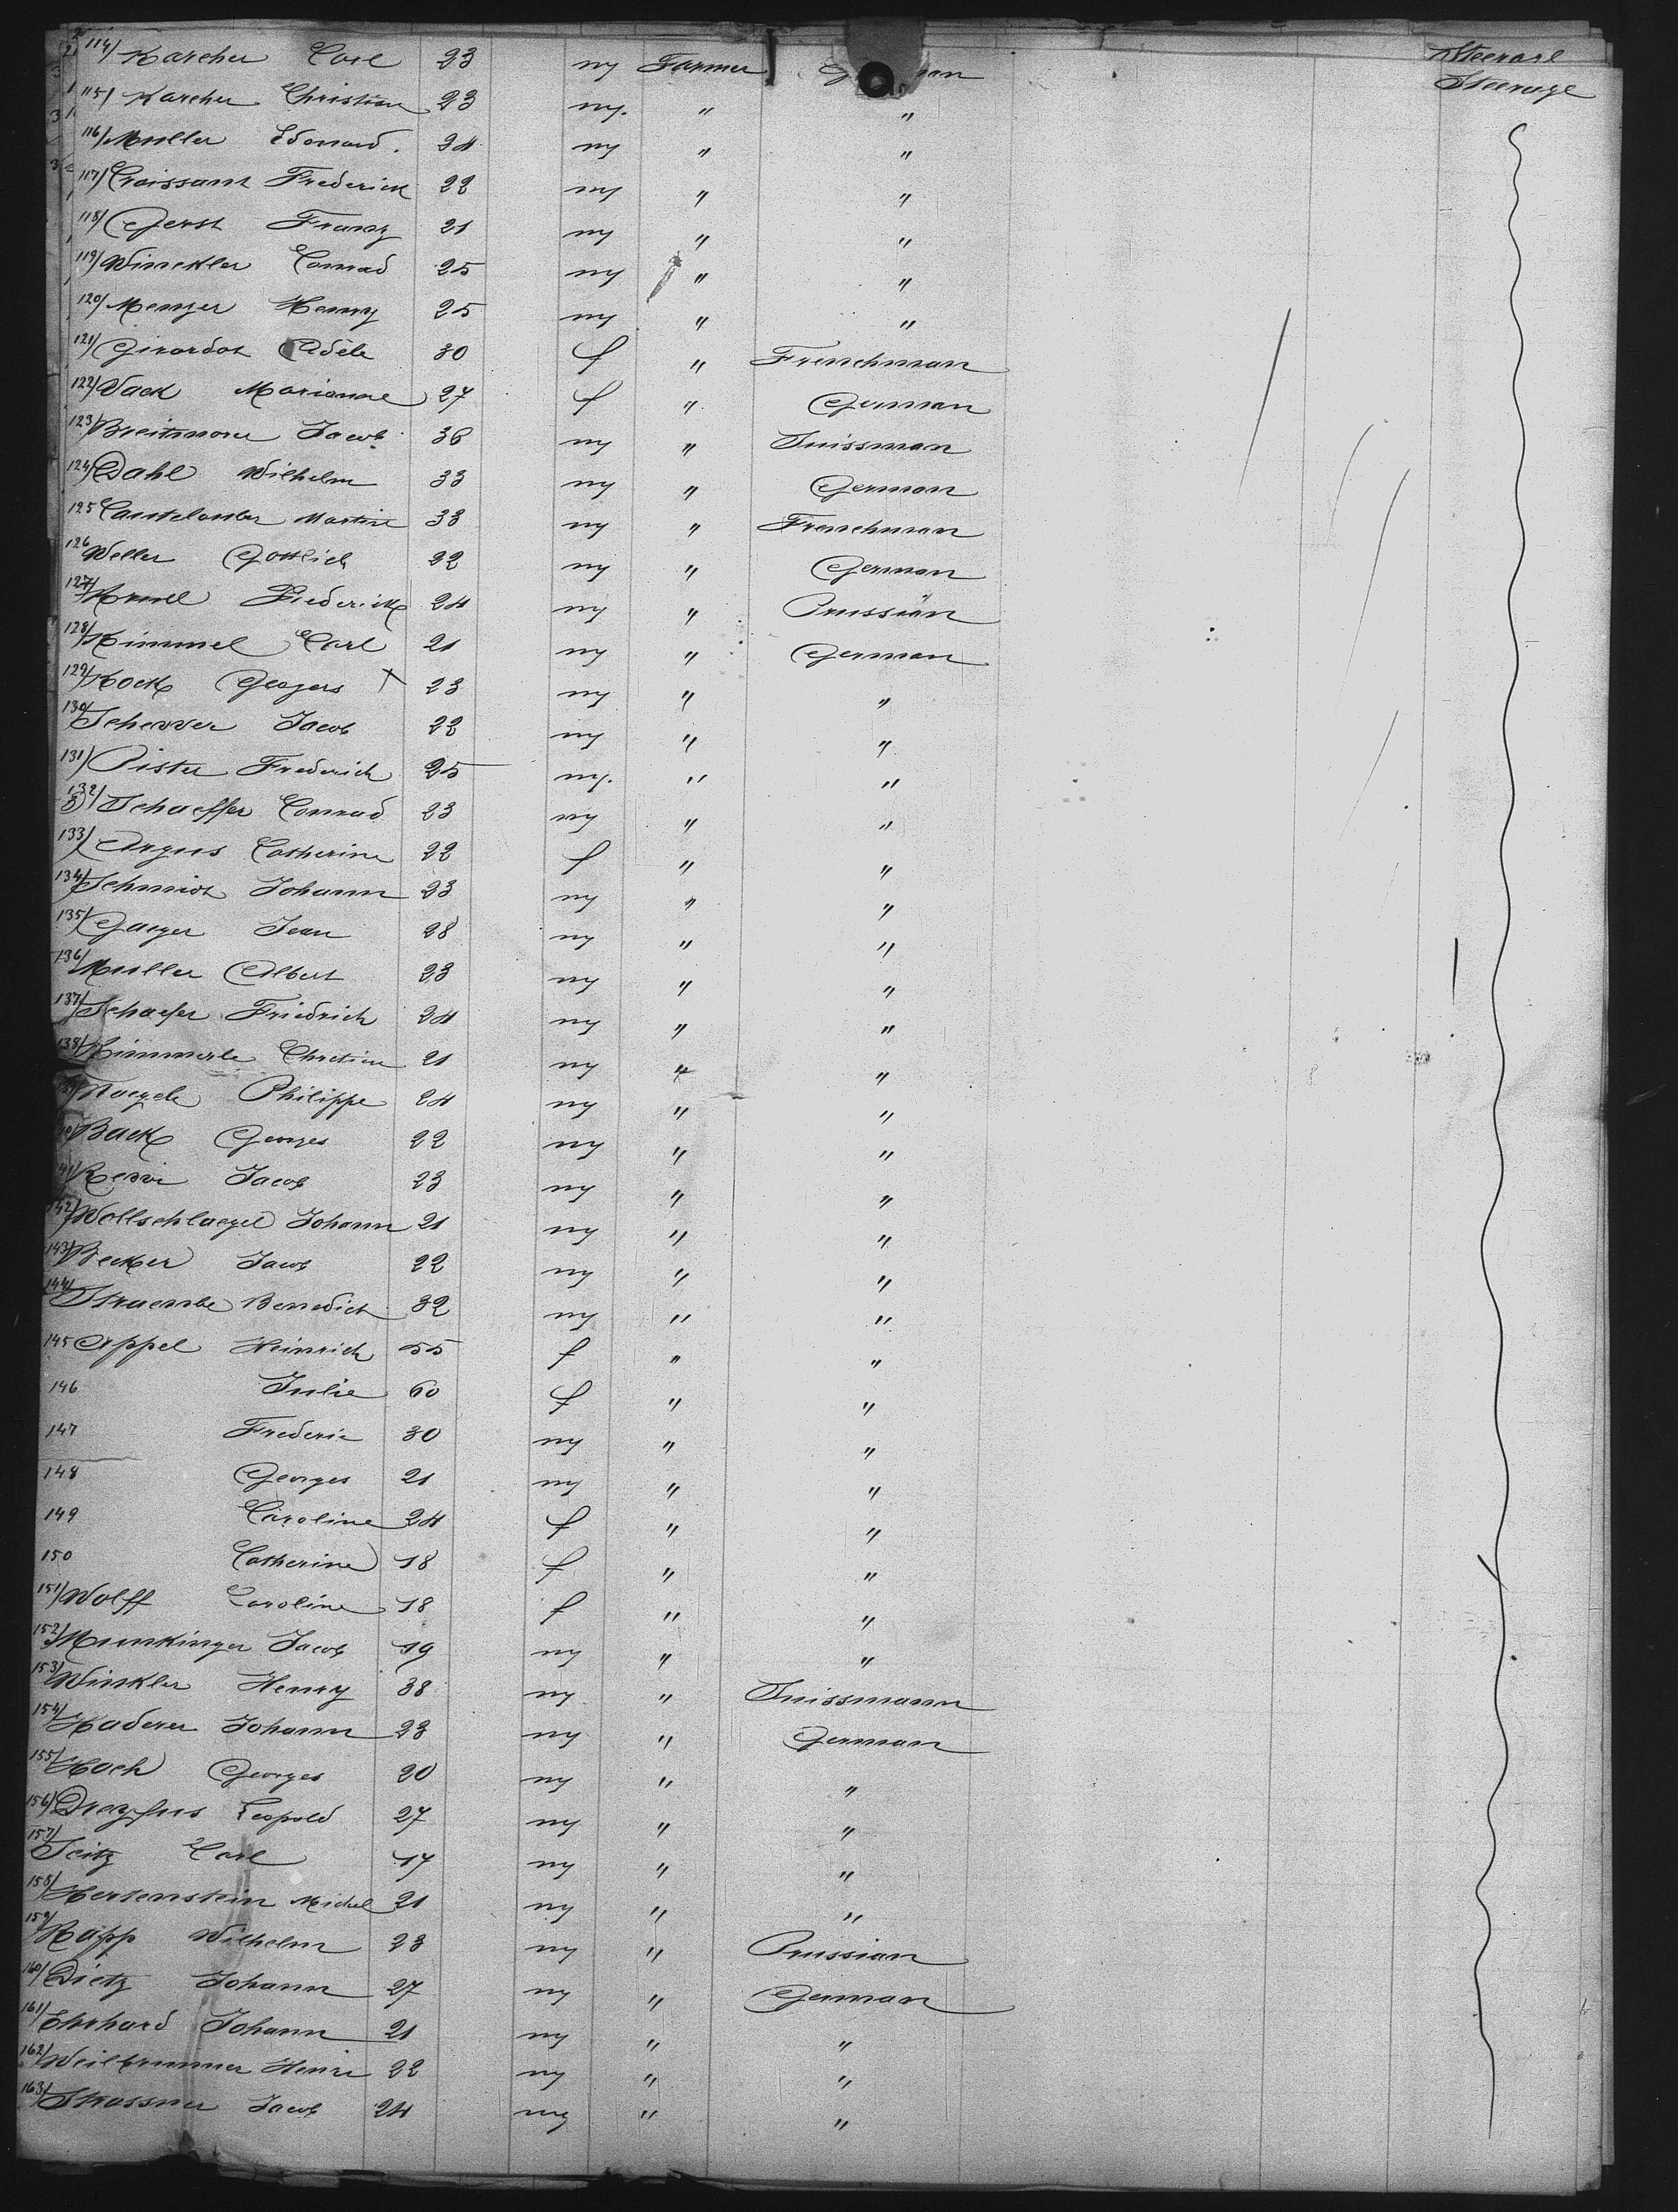 Steerage
114/ Karcher Carl 23 m Farmer Steerage
115/ Karcher Christian 23 m. " "
116/ Muller Edouard. 24 m " "
117/ Croissant Frederick 22 m " "
118/ Gerst Franz 21 m " "
119/ Winckler Conrad 25 m " "
120/ Menger Henry 25 m " "
121/ Girardot Adèle 30 f " Frenchman
122/ Wack Marianne 27 f " German
123/ Jacob 36 m " Suissman
124/ Dahl Wilhelm 33 m " German
125 Martin 33 m " Frenchman
126 Weller Gottlieb 22 m " German
127/ Frederick 24 m " Prussian
128/ Kimmel Carl 21 m " German
129/ Kock Geogers 23 m " "
130/ Jacob 22 m " "
131/ Pister Frederich 25 m. " "
132/ Schaeffer Conrad 23 m " "
133/ Argus Catherine 22 f " "
134/ Schmidt Johann 23 m " "
135/ Gaeger Jean 28 m " "
136/ Muller Albert 23 m " "
137/ Schaefer Friedrich 24 m " "
138/ Kimmerle Chretien 21 m " "
139/ Naegele Philippe 24 m " "
140/ Back Georges 22 m " "
141/ Jacob 23 m " "
142/ Wollschlaegel Johann 21 m " "
143/ Becker Jacob 22 m " "
144/ Benedict 32 m " "
145 Appel Heinrich 55 f " "
146 Julie 60 f " "
147 Frederic 30 m " "
148 Georges 21 m " "
149 Caroline 24 f " "
150 Catherine 18 f " "
151/ Wolff Caroline 18 f " "
152/ Munkinger Jacob 19 m " "
153/ Winkler Henry 38 m " Suissmann
154/ Haderer Johann 23 m " German
155/ Hoch Georges 20 m " "
156/ Dreyfus Leopold 27 m " "
157/ Seitz Carl 17 m " "
158/ Hertenstein Michel 21 m " "
159/ Rapp Wilhelm 23 m " Prussian
160/ Dietz Johann 27 m " German
161/ Ehrhard Johann 21 m " "
162/ Weilbrunner Henri 22 m " "
163/ Strassner Jacob 24 m " "